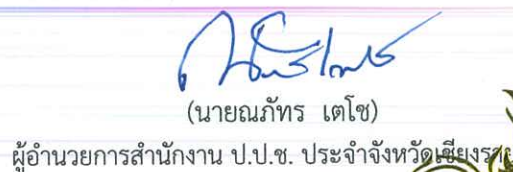 (นายณภัทร เตโช)
ผู้อำนวยการสำนักงาน ป.ป.ช. ประจำจังหวัดเชียงราย